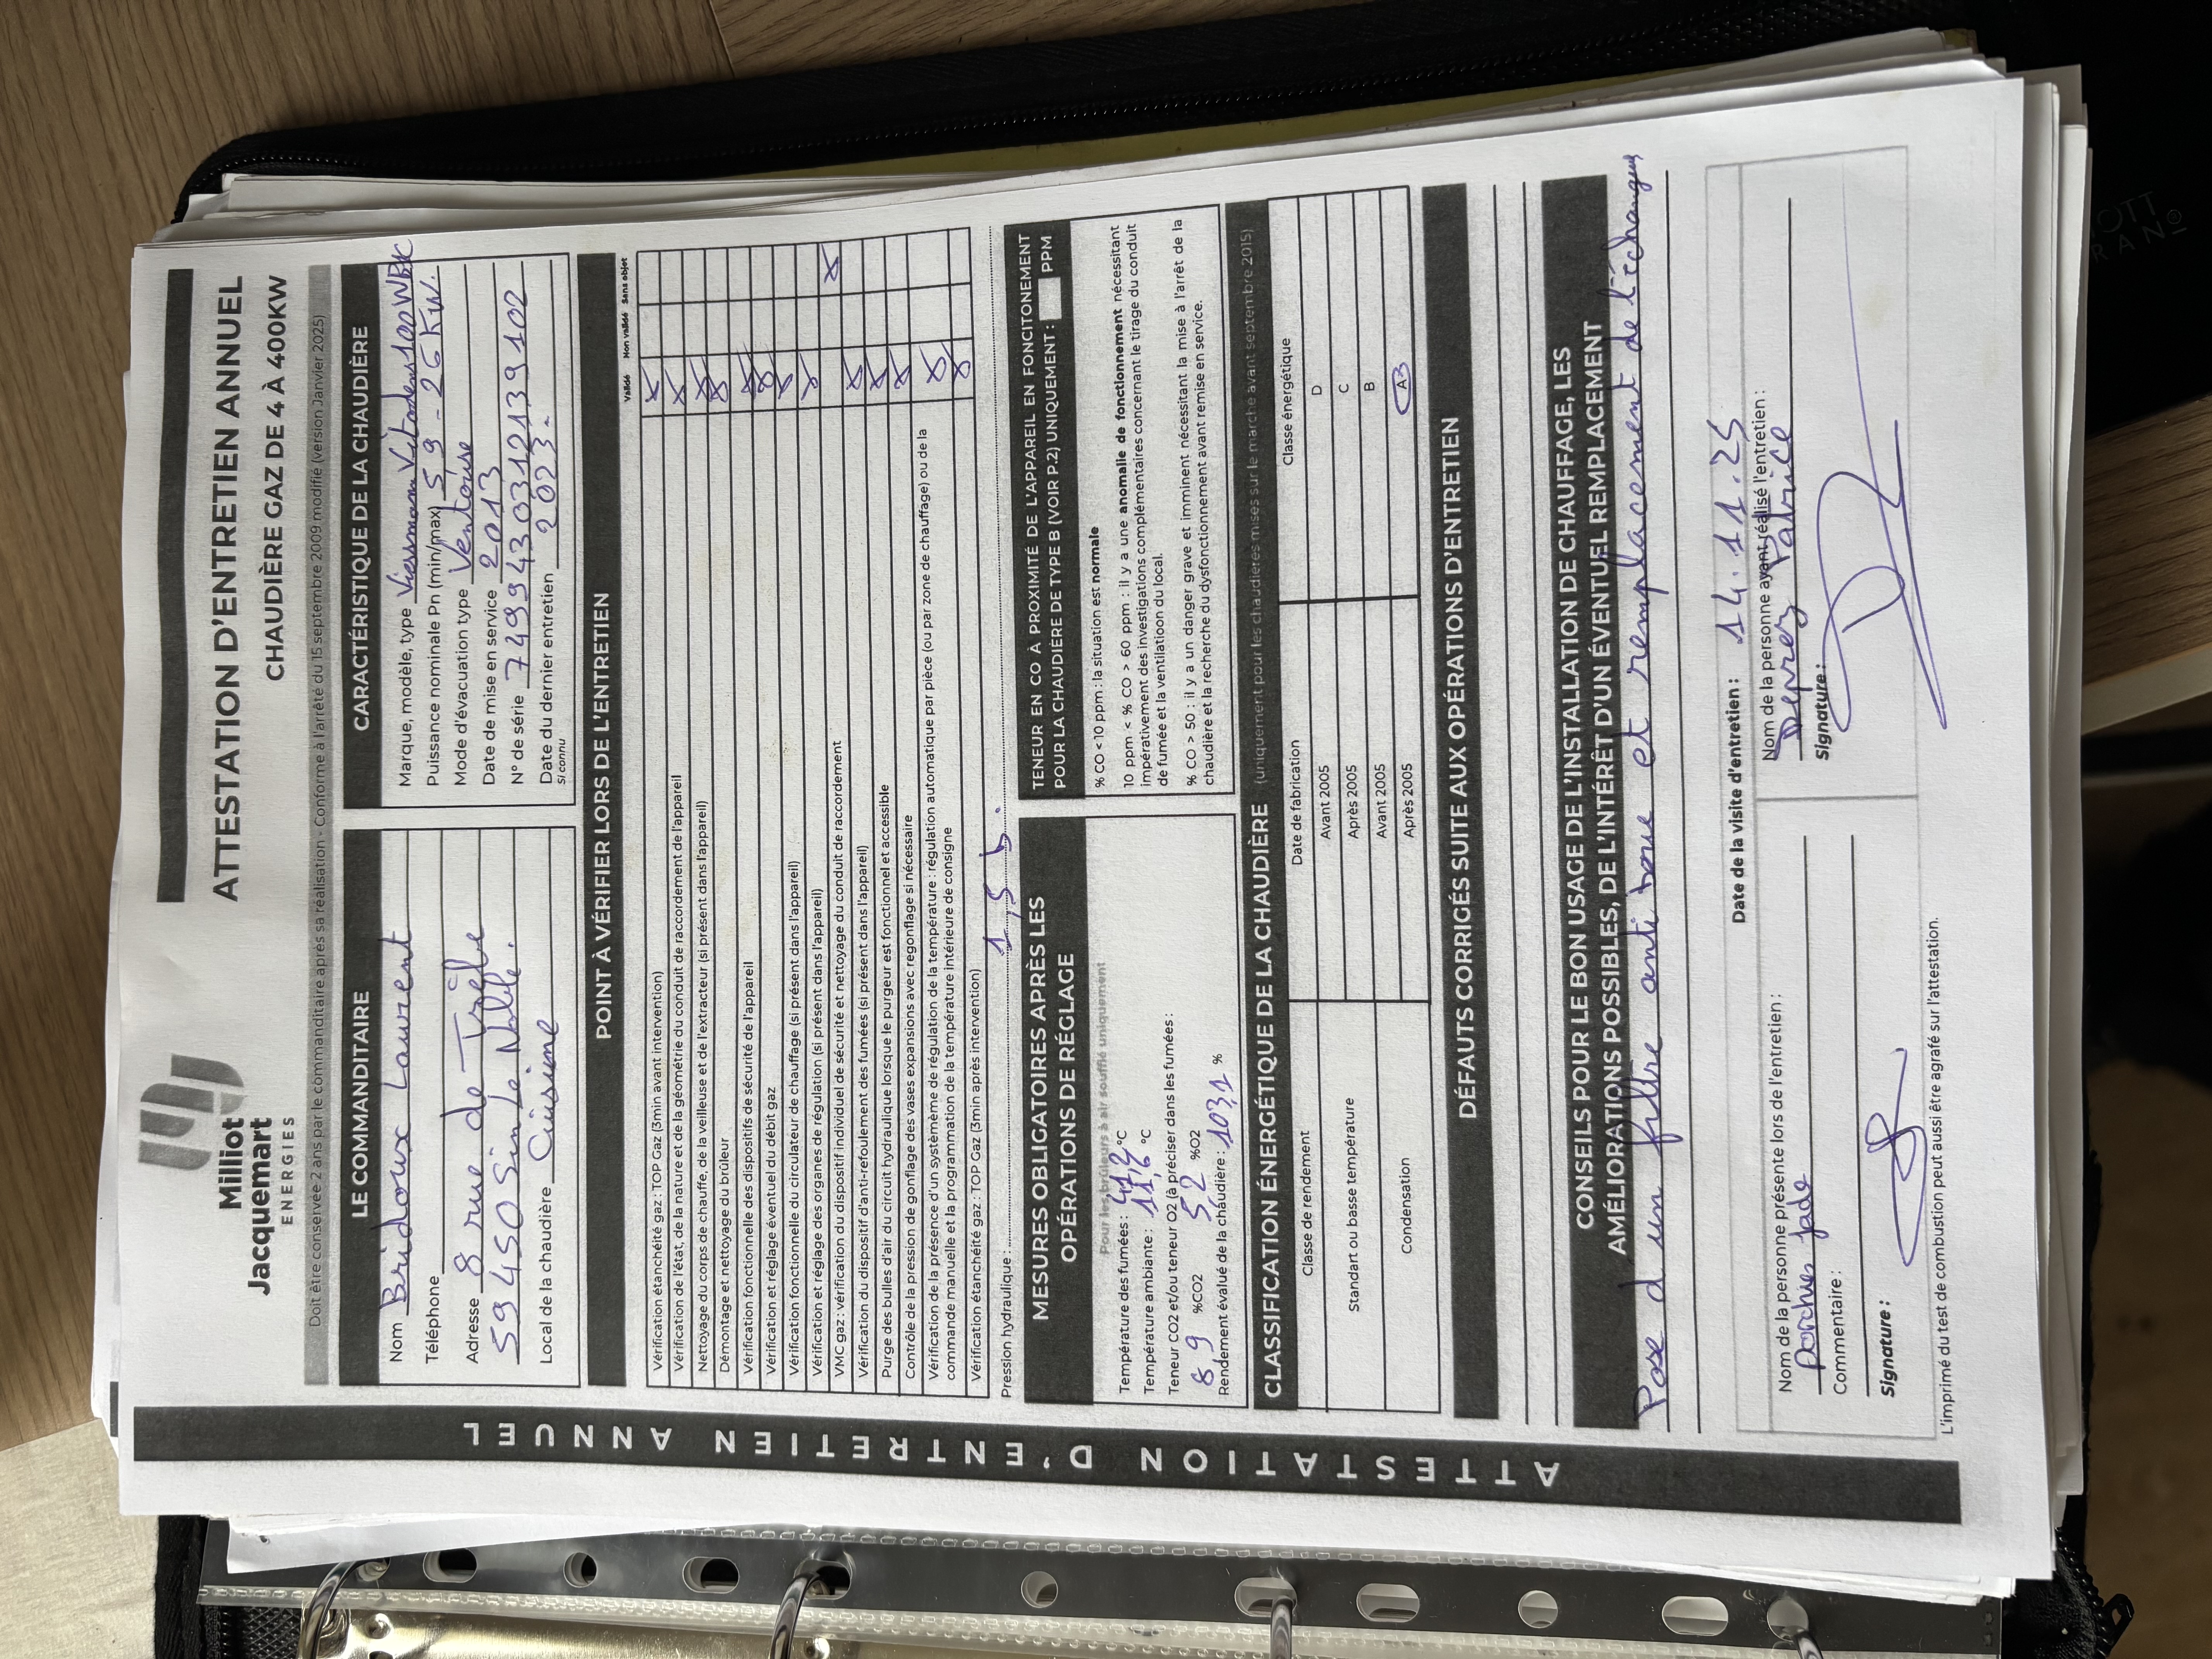 Milliot
Jacquemart
ENERGIES
ATTESTATION D'ENTRETIEN ANNUEL
CHAUDIÈRE GAZ DE 4 À 400KW
Doit être conservée 2 ans par le commanditaire après sa réalisation - Conforme à l'arrêté du 15 septembre 2009 modifié (version Janvier 2025)
LE COMMANDITAIRE
Nom Bridoux Laurent
Téléphone
Adresse 8 rue de Trèfle
59450 Sin Le Noble.
Local de la chaudière Cuisine
CARACTÉRISTIQUE DE LA CHAUDIÈRE
Marque, modèle, type Viessmann Vitodens 100 WB1C
Puissance nominale Pn (min/max) 5 9 - 26 KW.
Mode d'évacuation type Ventouse
Date de mise en service 2013
N° de série 7499430312139102
Date du dernier entretien 2023.
Si connu
POINT À VÉRIFIER LORS DE L'ENTRETIEN
Validé Non validé Sans objet
Vérification étanchéité gaz : TOP Gaz (3min avant intervention) X
Vérification de l'état, de la nature et de la géométrie du conduit de raccordement de l'appareil X
Nettoyage du corps de chauffe, de la veilleuse et de l'extracteur (si présent dans l'appareil) X
Démontage et nettoyage du brûleur X
Vérification fonctionnelle des dispositifs de sécurité de l'appareil X
Vérification et réglage éventuel du débit gaz X
Vérification fonctionnelle du circulateur de chauffage (si présent dans l'appareil) X
Vérification et réglage des organes de régulation (si présent dans l'appareil) X
VMC gaz : vérification du dispositif individuel de sécurité et nettoyage du conduit de raccordement X
Vérification du dispositif d'anti-refoulement des fumées (si présent dans l'appareil) X
Purge des bulles d'air du circuit hydraulique lorsque le purgeur est fonctionnel et accessible X
Contrôle de la pression de gonflage des vases expansions avec regonflage si nécessaire X
Vérification de la présence d'un système de régulation de la température : régulation automatique par pièce (ou par zone de chauffage) ou de la
commande manuelle et la programmation de la température intérieure de consigne X
Vérification étanchéité gaz : TOP Gaz (3min après intervention) X
Pression hydraulique : 1,5 b.
MESURES OBLIGATOIRES APRÈS LES
OPÉRATIONS DE RÉGLAGE
Pour les brûleurs à air soufflé uniquement
Température des fumées : 47,2 °C
Température ambiante : 11,6 °C
Teneur CO2 et/ou teneur O2 (à préciser dans les fumées) :
8 9 %CO2 5,2 %O2
Rendement évalué de la chaudière : 103,1 %
TENEUR EN CO À PROXIMITÉ DE L'APPAREIL EN FONCITONEMENT
POUR LA CHAUDIÈRE DE TYPE B (VOIR P.2) UNIQUEMENT : PPM
% CO < 10 ppm : la situation est normale
10 ppm < % CO > 60 ppm : il y a une anomalie de fonctionnement nécessitant
impérativement des investigations complémentaires concernant le tirage du conduit
de fumée et la ventilatioon du local.
% CO > 50 : il y a un danger grave et imminent nécessitant la mise à l'arrêt de la
chaudière et la recherche du dysfonctionnement avant remise en service.
CLASSIFICATION ÉNERGÉTIQUE DE LA CHAUDIÈRE (uniquement pour les chaudières mises sur le marché avant septembre 2015)
Classe de rendement Date de fabrication Classe énergétique
Standart ou basse température Avant 2005 D
Après 2005 C
Condensation Avant 2005 B
Après 2005 A3
DÉFAUTS CORRIGÉS SUITE AUX OPÉRATIONS D'ENTRETIEN
CONSEILS POUR LE BON USAGE DE L'INSTALLATION DE CHAUFFAGE, LES
AMÉLIORATIONS POSSIBLES, DE L'INTÉRÊT D'UN ÉVENTUEL REMPLACEMENT
Pose d'un filtre anti boue et remplacement de l'échangeur
Date de la visite d'entretien : 14.11.25
Nom de la personne présente lors de l'entretien :
Jade
Commentaire :
Signature :
Nom de la personne ayant réalisé l'entretien :
Deprez Fabrice
Signature :
L'imprimé du test de combustion peut aussi être agrafé sur l'attestation.
ATTESTATION D'ENTRETIEN ANNUEL